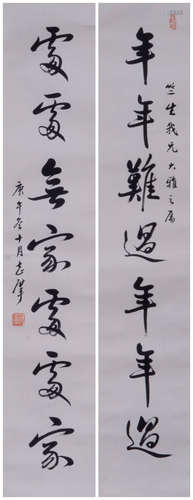 竺生我兄大雅之屬
年年難過年年過
處處無家處處家
庚午冬十月志摩